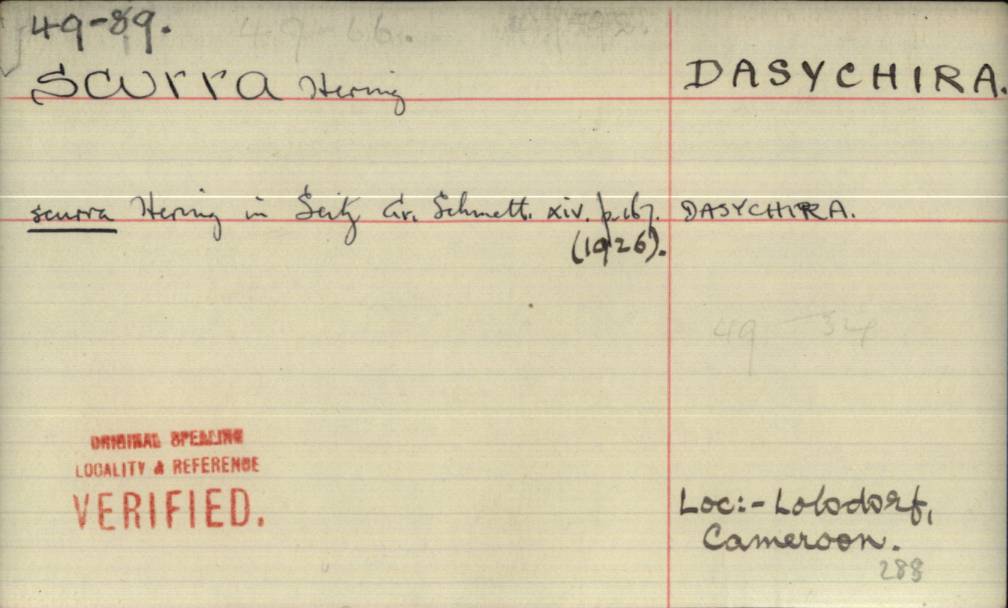 49-89.
scurra Hering DASYCHIRA.
scurra Hering in Seitz Gr. Schmett. xiv. p.167. DASYCHIRA.
(1926).
49 - 34
ORIGINAL SPELLING
LOCALITY & REFERENCE
VERIFIED.
Loc:- Lolodorf,
Cameroon.
288